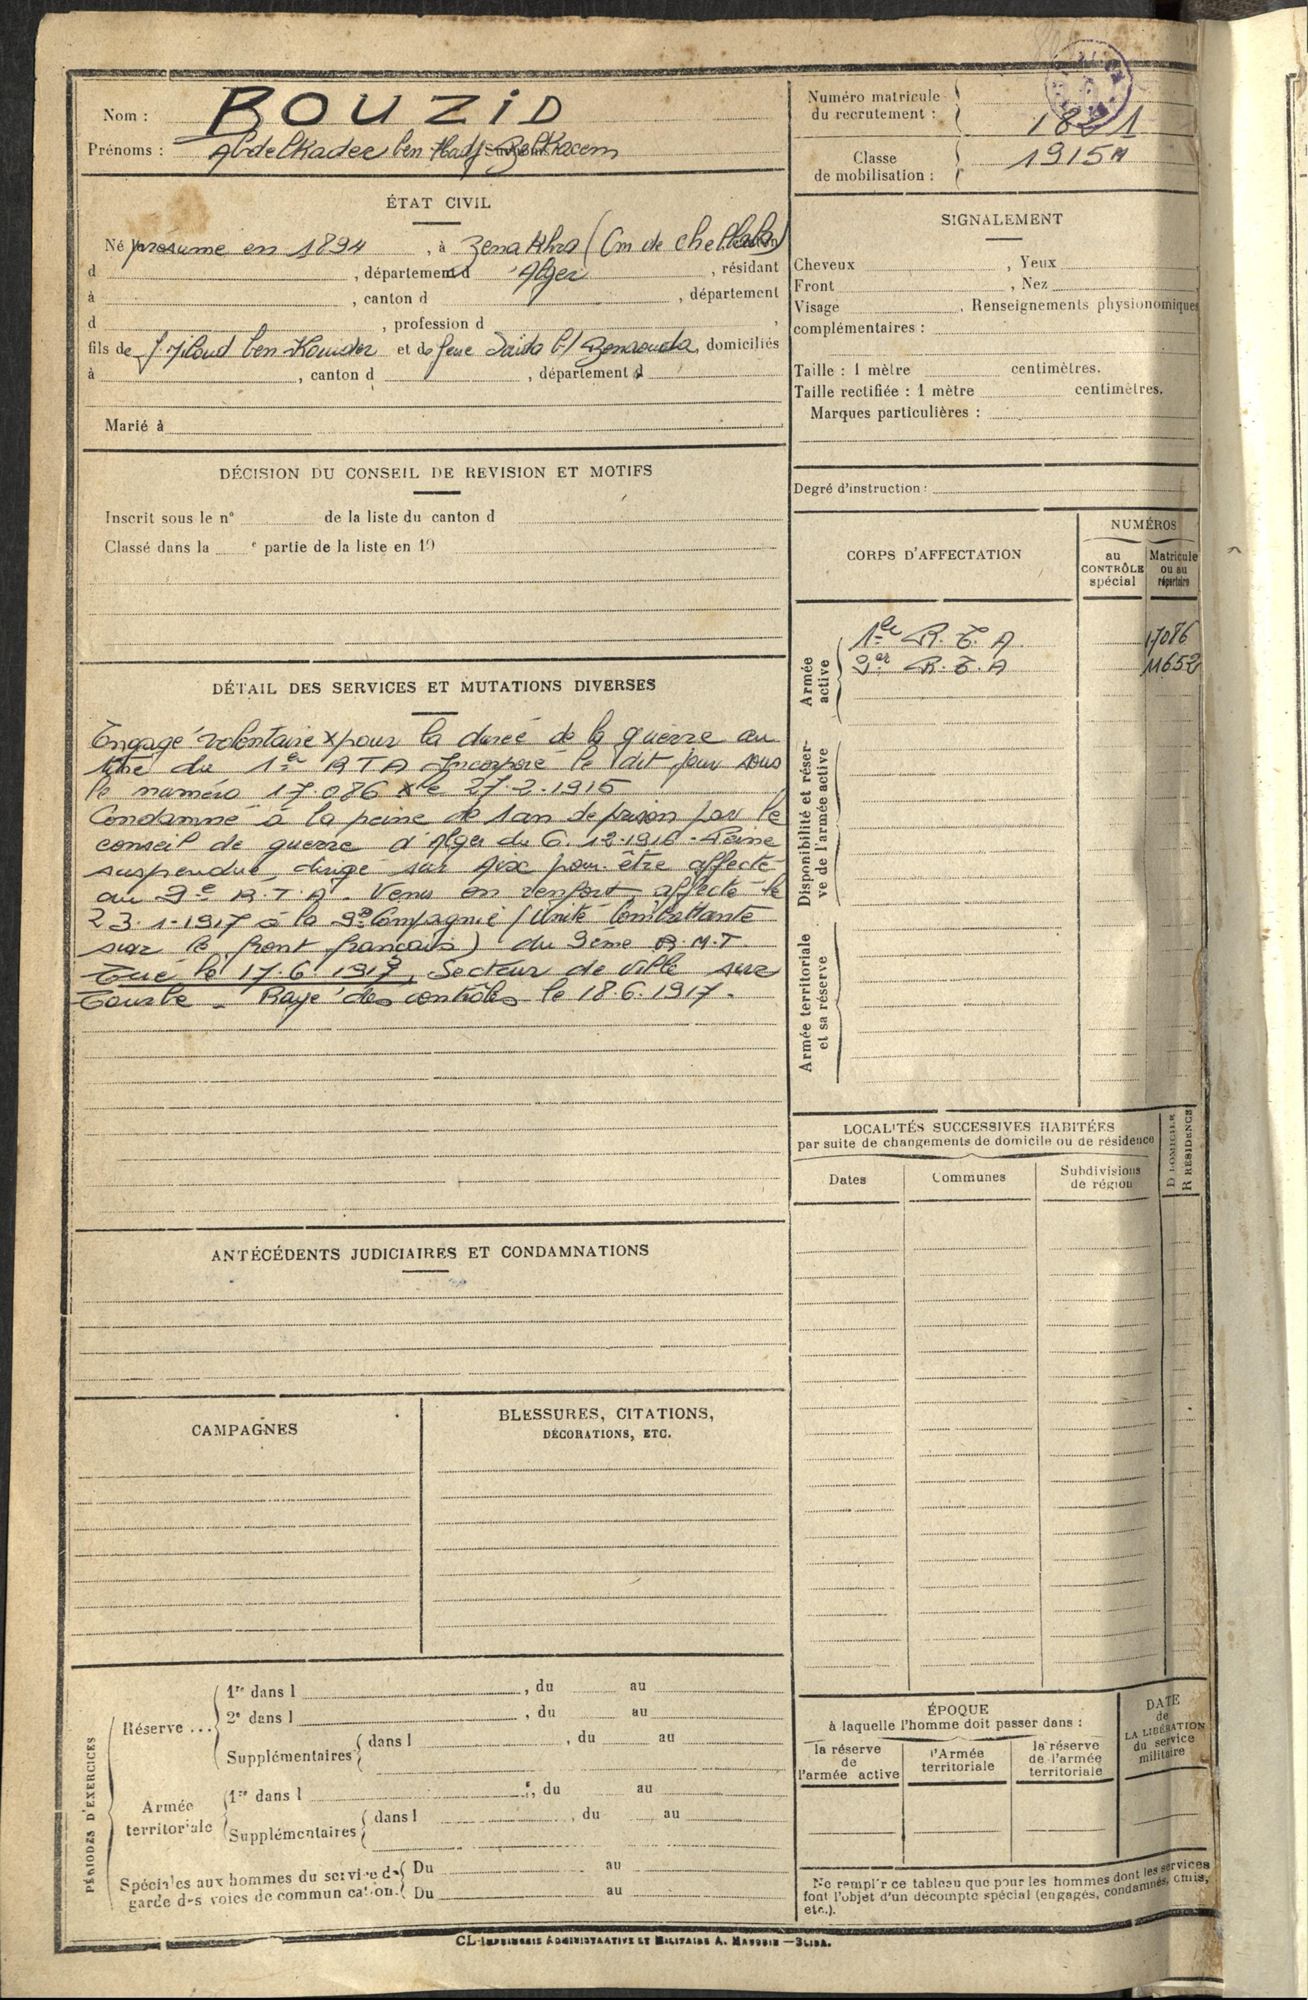 Nom : BOUZID
Prénoms : Abdelkader ben Hadj Belkacem
ÉTAT CIVIL
Né présumé en 1894, à Zenakhra (Cm de Chellala)
d, département d'Alger, résidant
à, canton d, département
d, profession d,
fils de f Miloud ben Kouider et de feue Saïda bt Benaouda, domiciliés
à, canton d, département d
Marié à
DÉCISION DU CONSEIL DE REVISION ET MOTIFS
Inscrit sous le n° de la liste du canton d
Classé dans la e partie de la liste en 19
DÉTAIL DES SERVICES ET MUTATIONS DIVERSES
Engagé volontaire x pour la durée de la guerre au
titre du 1er RTA Incorporé le dit jour sous
le numéro 17.086 x le 27.2.1915
Condamné à la peine de 1 an de prison par le
conseil de guerre d'Alger du 6.12.1916 - Peine
suspendue, dirigé sur Aix pour être affecté
au 9e R.T.A. Venu en renfort, affecté le
23.1.1917 à la 9e Compagnie (Unité Combattante
sur le front français) du 9ème R.M.T.
Tué le 17.6.1917, Secteur de Ville sur
Tourbe - Rayé des contrôles le 18.6.1917.
ANTÉCÉDENTS JUDICIAIRES ET CONDAMNATIONS
CAMPAGNES
BLESSURES, CITATIONS,
DÉCORATIONS, ETC.
PÉRIODES D'EXERCICES
Réserve ...
1re dans l, du au
2e dans l, du au
Supplémentaires dans l, du au
Armée
territoriale
1re dans l, du au
Supplémentaires dans l, du au
Spéciales aux hommes du service de
garde des voies de communication.
Du au
Du au
Numéro matricule
du recrutement :
1821
Classe
de mobilisation :
1915
SIGNALEMENT
Cheveux, Yeux
Front, Nez
Visage. Renseignements physionomiques
complémentaires :
Taille : 1 mètre centimètres.
Taille rectifiée : 1 mètre centimètres.
Marques particulières :
Degré d'instruction :
CORPS D'AFFECTATION
NUMÉROS
au
CONTRÔLE
spécial
Matricule
ou au
répertoire
Armée
active
1er R.T.A 17086
9er R.T.A 11652
Disponibilité et réser-
ve de l'armée active
Armée territoriale
et sa réserve
LOCALITÉS SUCCESSIVES HABITÉES
par suite de changements de domicile ou de résidence
Dates
Communes
Subdivisions
de région
D DOMICILE
R RÉSIDENCE
ÉPOQUE
à laquelle l'homme doit passer dans :
la réserve
de
l'armée active
l'Armée
territoriale
la réserve
de l'armée
territoriale
DATE
de
LA LIBÉRATION
du service
militaire
Ne remplir ce tableau que pour les hommes dont les services
font l'objet d'un décompte spécial (engagés, condamnés, omis,
etc.).
IMPRIMERIE ADMINISTRATIVE ET MILITAIRE A. MAUGUIN — BLIDA.